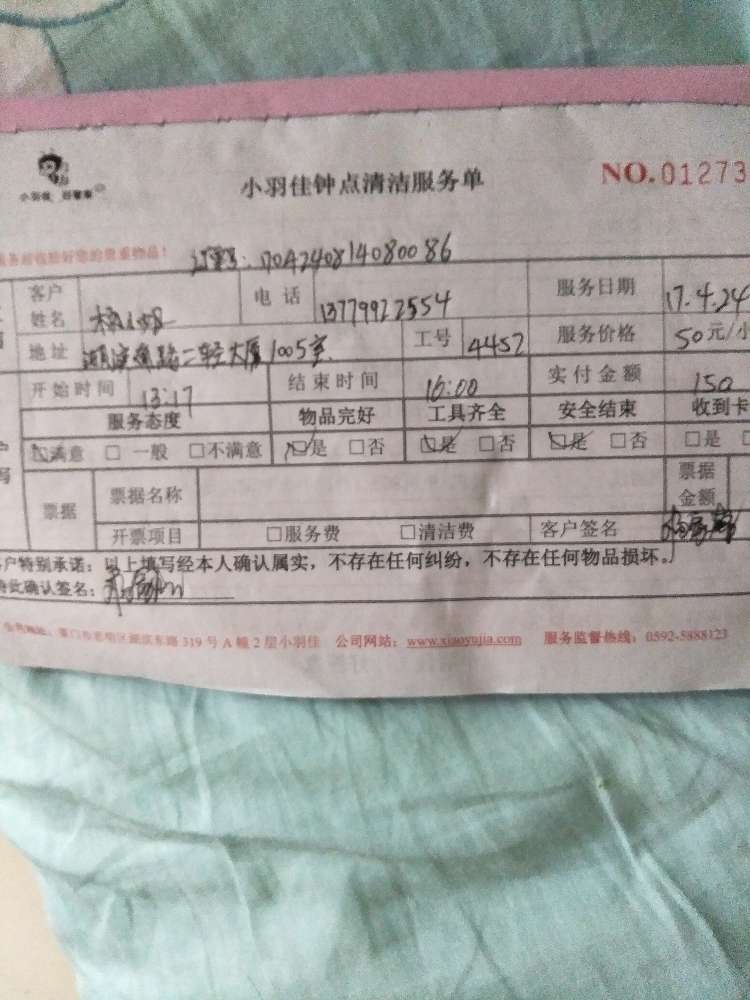 小羽佳钟点清洁服务单
NO.01273
小羽佳 好管家
订单号：170424081408 0086
客户姓名 电话 13779922554 服务日期 17.4.24
地址 二轻大厦1005室 工号 4457 服务价格 50元/小
开始时间 13:17 结束时间 16:00 实付金额 150
服务态度 物品完好 工具齐全 安全结束 收到卡
☑满意 □一般 □不满意 ☑是 □否 ☑是 □否 ☑是 □否 □是
票据 票据名称 票据金额
开票项目 □服务费 □清洁费 客户签名
户特别承诺：以上填写经本人确认属实，不存在任何纠纷，不存在任何物品损坏。
特此确认签名：
公司地址：厦门市思明区湖滨东路319号A幢2层小羽佳 公司网站：www.xiaoyujia.com 服务监督热线：0592-5888123